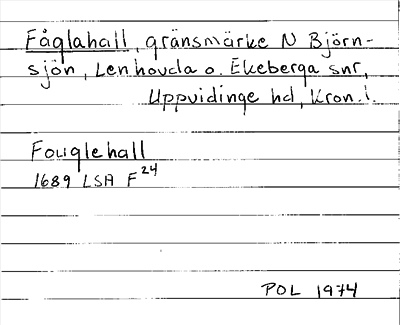 Fåglahall, gränsmärke N Björn-
sjön, Lenhovda o. Ekeberga snr,
Uppvidinge hd, Kron. l.
Fouglehall
1689 LSA F 24
POL 1974